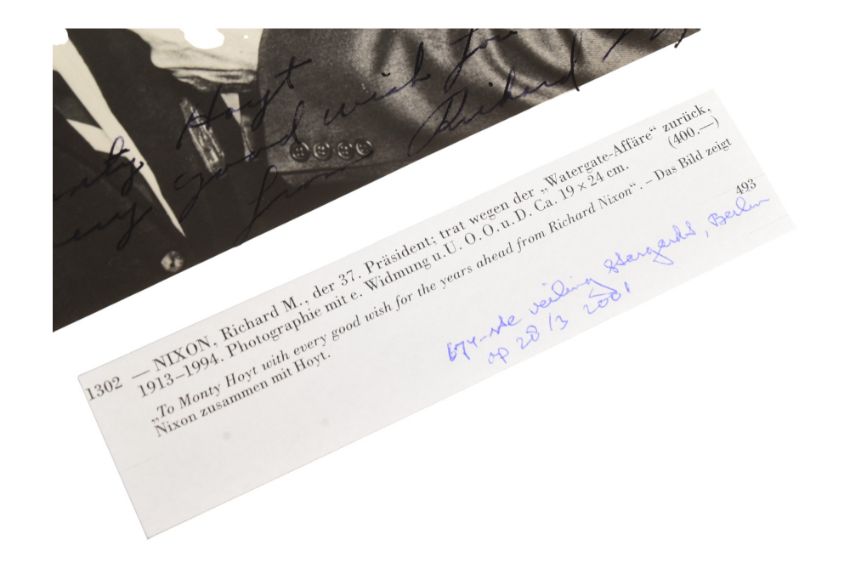 Hoyt
every good wish for
from Richard
1302 — NIXON, Richard M., der 37. Präsident; trat wegen der „Watergate-Affäre“ zurück.
1913–1994. Photographie mit e. Widmung u. U. O. O. u. D. Ca. 19 × 24 cm. (400.—)
„To Monty Hoyt with every good wish for the years ahead from Richard Nixon“. – Das Bild zeigt
Nixon zusammen mit Hoyt.
493
veiling Stargardt, Berlin
op 28/3 2001